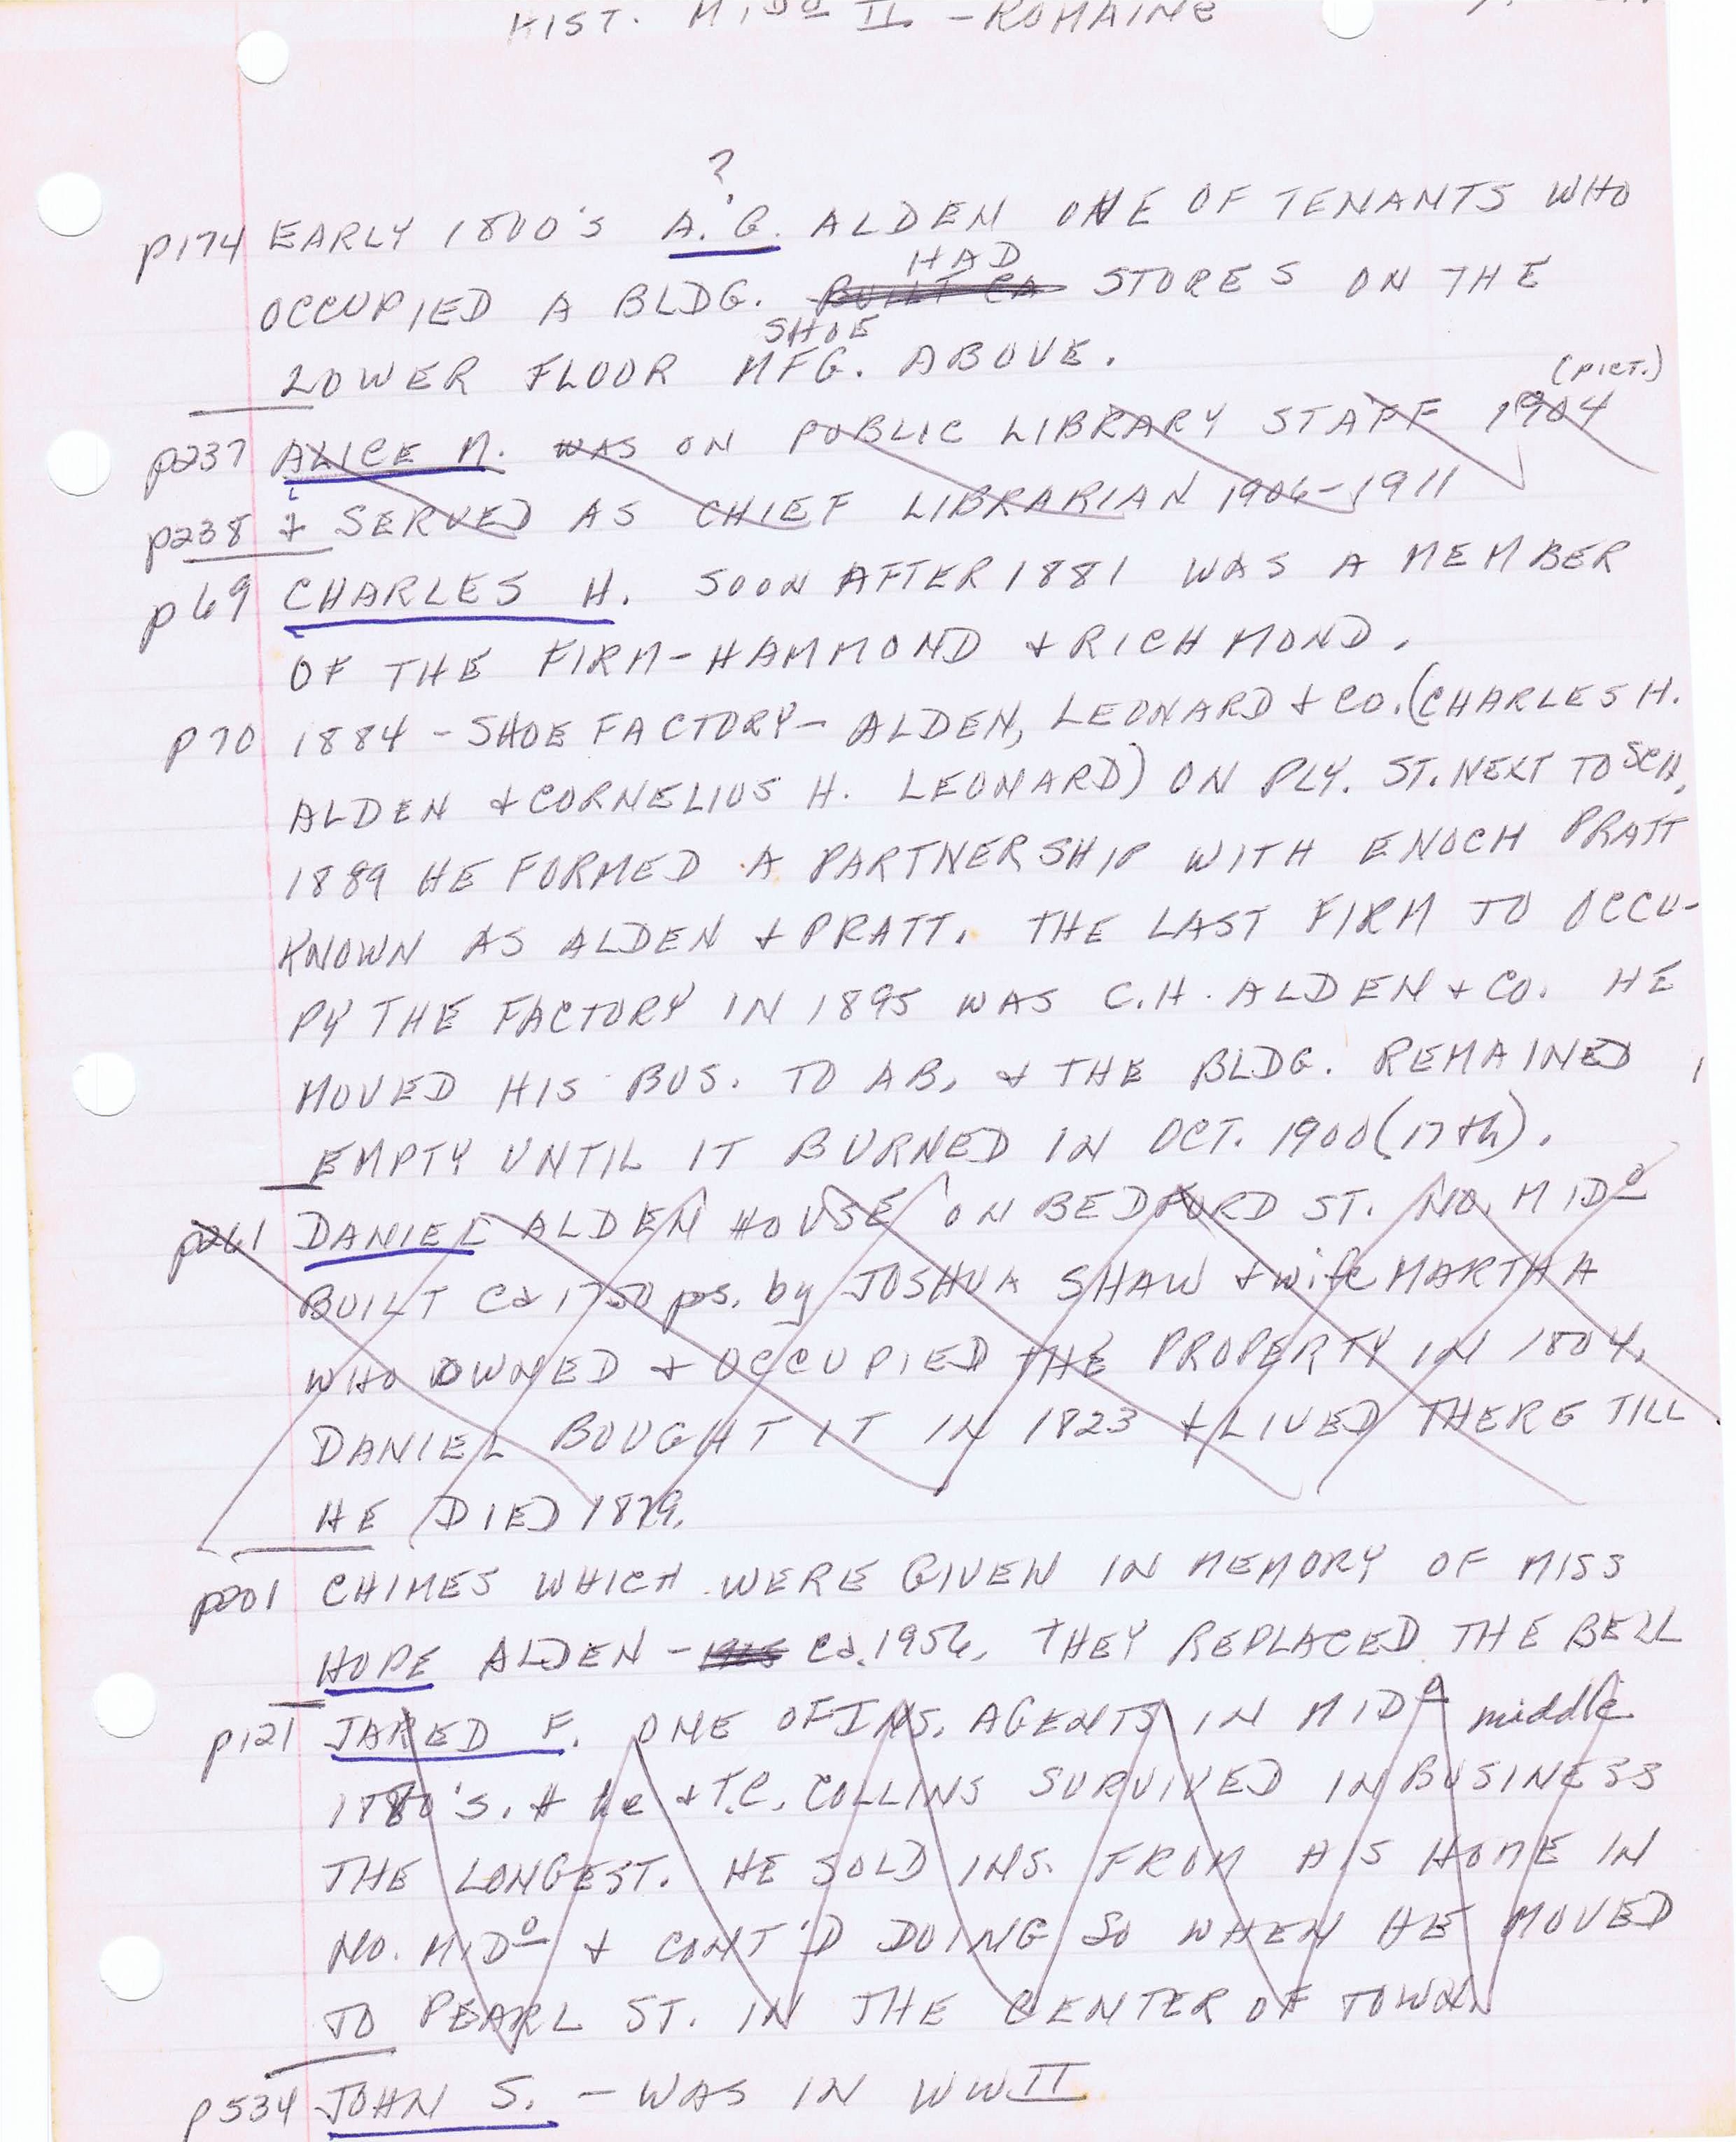 HIST. MIDº II - ROMAINE
?
p174 EARLY 1800's A. G. ALDEN ONE OF TENANTS WHO
HAD
OCCUPIED A BLDG. BUILT CA STORES ON THE
SHOE
LOWER FLOOR MFG. ABOVE.
(PICT.)
p237 ALICE M. WAS ON PUBLIC LIBRARY STAFF 1904
p238 & SERVED AS CHIEF LIBRARIAN 1906-1911
p69 CHARLES H. SOON AFTER 1881 WAS A MEMBER
OF THE FIRM-HAMMOND & RICHMOND.
p70 1884 - SHOE FACTORY - ALDEN, LEONARD & CO. (CHARLES H.
ALDEN & CORNELIUS H. LEONARD) ON PLY. ST. NEXT TO SCH.
1889 HE FORMED A PARTNERSHIP WITH ENOCH PRATT
KNOWN AS ALDEN & PRATT. THE LAST FIRM TO OCCU-
PY THE FACTORY IN 1895 WAS C.H. ALDEN & CO. HE
MOVED HIS BUS. TO AB, & THE BLDG. REMAINED
EMPTY UNTIL IT BURNED IN OCT. 1900 (17th).
p261 DANIEL ALDEN HOUSE ON BEDFORD ST. NO. MIDº
BUILT Ca 1750 ps. by JOSHUA SHAW & wife MARTHA
WHO OWNED & OCCUPIED THE PROPERTY IN 1804.
DANIEL BOUGHT IT IN 1823 & LIVED THERE TILL
HE DIED 1879.
p201 CHIMES WHICH WERE GIVEN IN MEMORY OF MISS
HOPE ALDEN - Ca. 1956. THEY REPLACED THE BELL
p121 JARED F. ONE OF INS. AGENTS IN MIDº middle
1880's. he & T.C. COLLINS SURVIVED IN BUSINESS
THE LONGEST. HE SOLD INS. FROM HIS HOME IN
NO. MIDº & CONT'D DOING SO WHEN HE MOVED
TO PEARL ST. IN THE CENTER OF TOWN.
p534 JOHN S. - WAS IN WW II